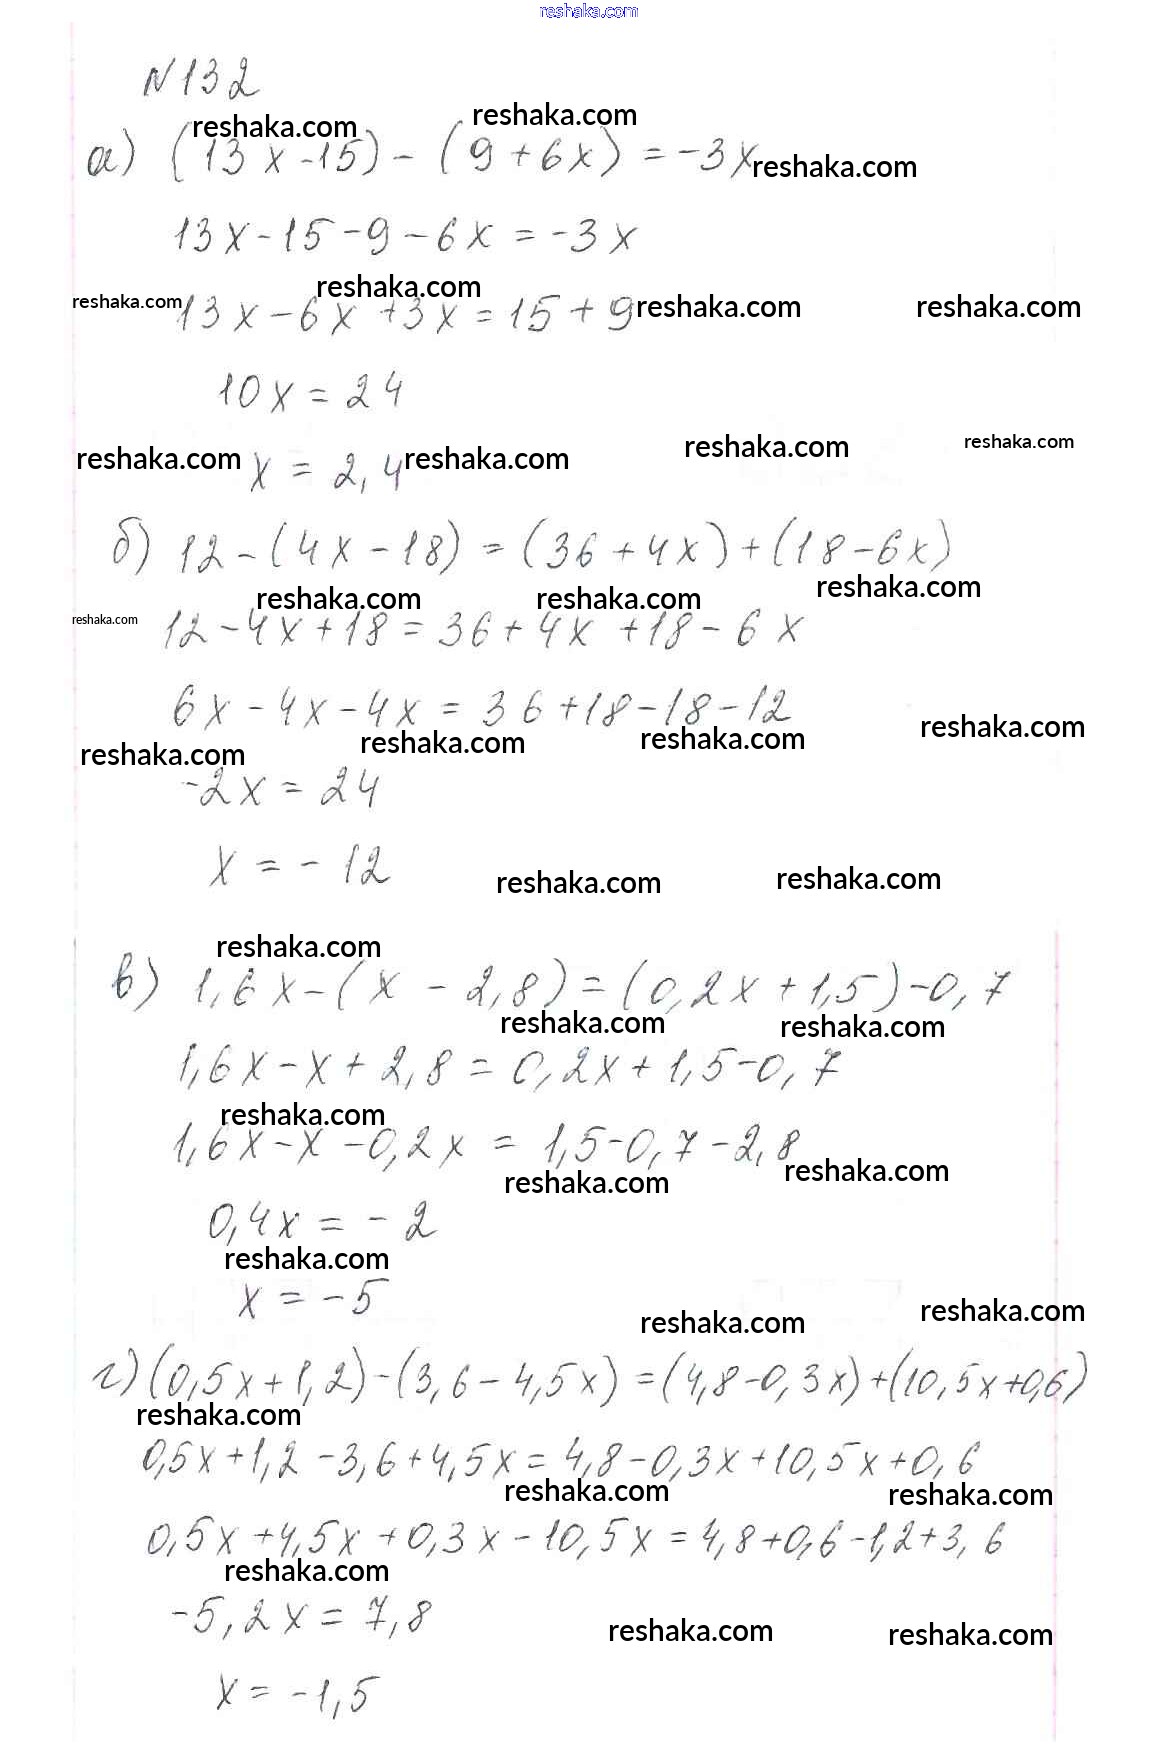 reshaka.com
N132
reshaka.com reshaka.com
а) (13x-15)-(9+6x)=-3x reshaka.com
13x-15-9-6x=-3x
reshaka.com reshaka.com reshaka.com reshaka.com
13x-6x+3x=15+9
10x=24
reshaka.com reshaka.com reshaka.com reshaka.com
x=2,4
б) 12-(4x-18)=(36+4x)+(18-6x)
reshaka.com reshaka.com reshaka.com reshaka.com
12-4x+18=36+4x+18-6x
6x-4x-4x=36+18-18-12
reshaka.com reshaka.com reshaka.com reshaka.com
-2x=24
x=-12
reshaka.com reshaka.com
reshaka.com
в) 1,6x-(x-2,8)=(0,2x+1,5)-0,7
reshaka.com reshaka.com
1,6x-x+2,8=0,2x+1,5-0,7
reshaka.com
1,6x-x-0,2x=1,5-0,7-2,8
reshaka.com reshaka.com
0,4x=-2
reshaka.com
x=-5
reshaka.com reshaka.com
г) (0,5x+1,2)-(3,6-4,5x)=(4,8-0,3x)+(10,5x+0,6)
reshaka.com
0,5x+1,2-3,6+4,5x=4,8-0,3x+10,5x+0,6
reshaka.com reshaka.com
0,5x+4,5x+0,3x-10,5x=4,8+0,6-1,2+3,6
reshaka.com
-5,2x=7,8
reshaka.com reshaka.com
x=-1,5